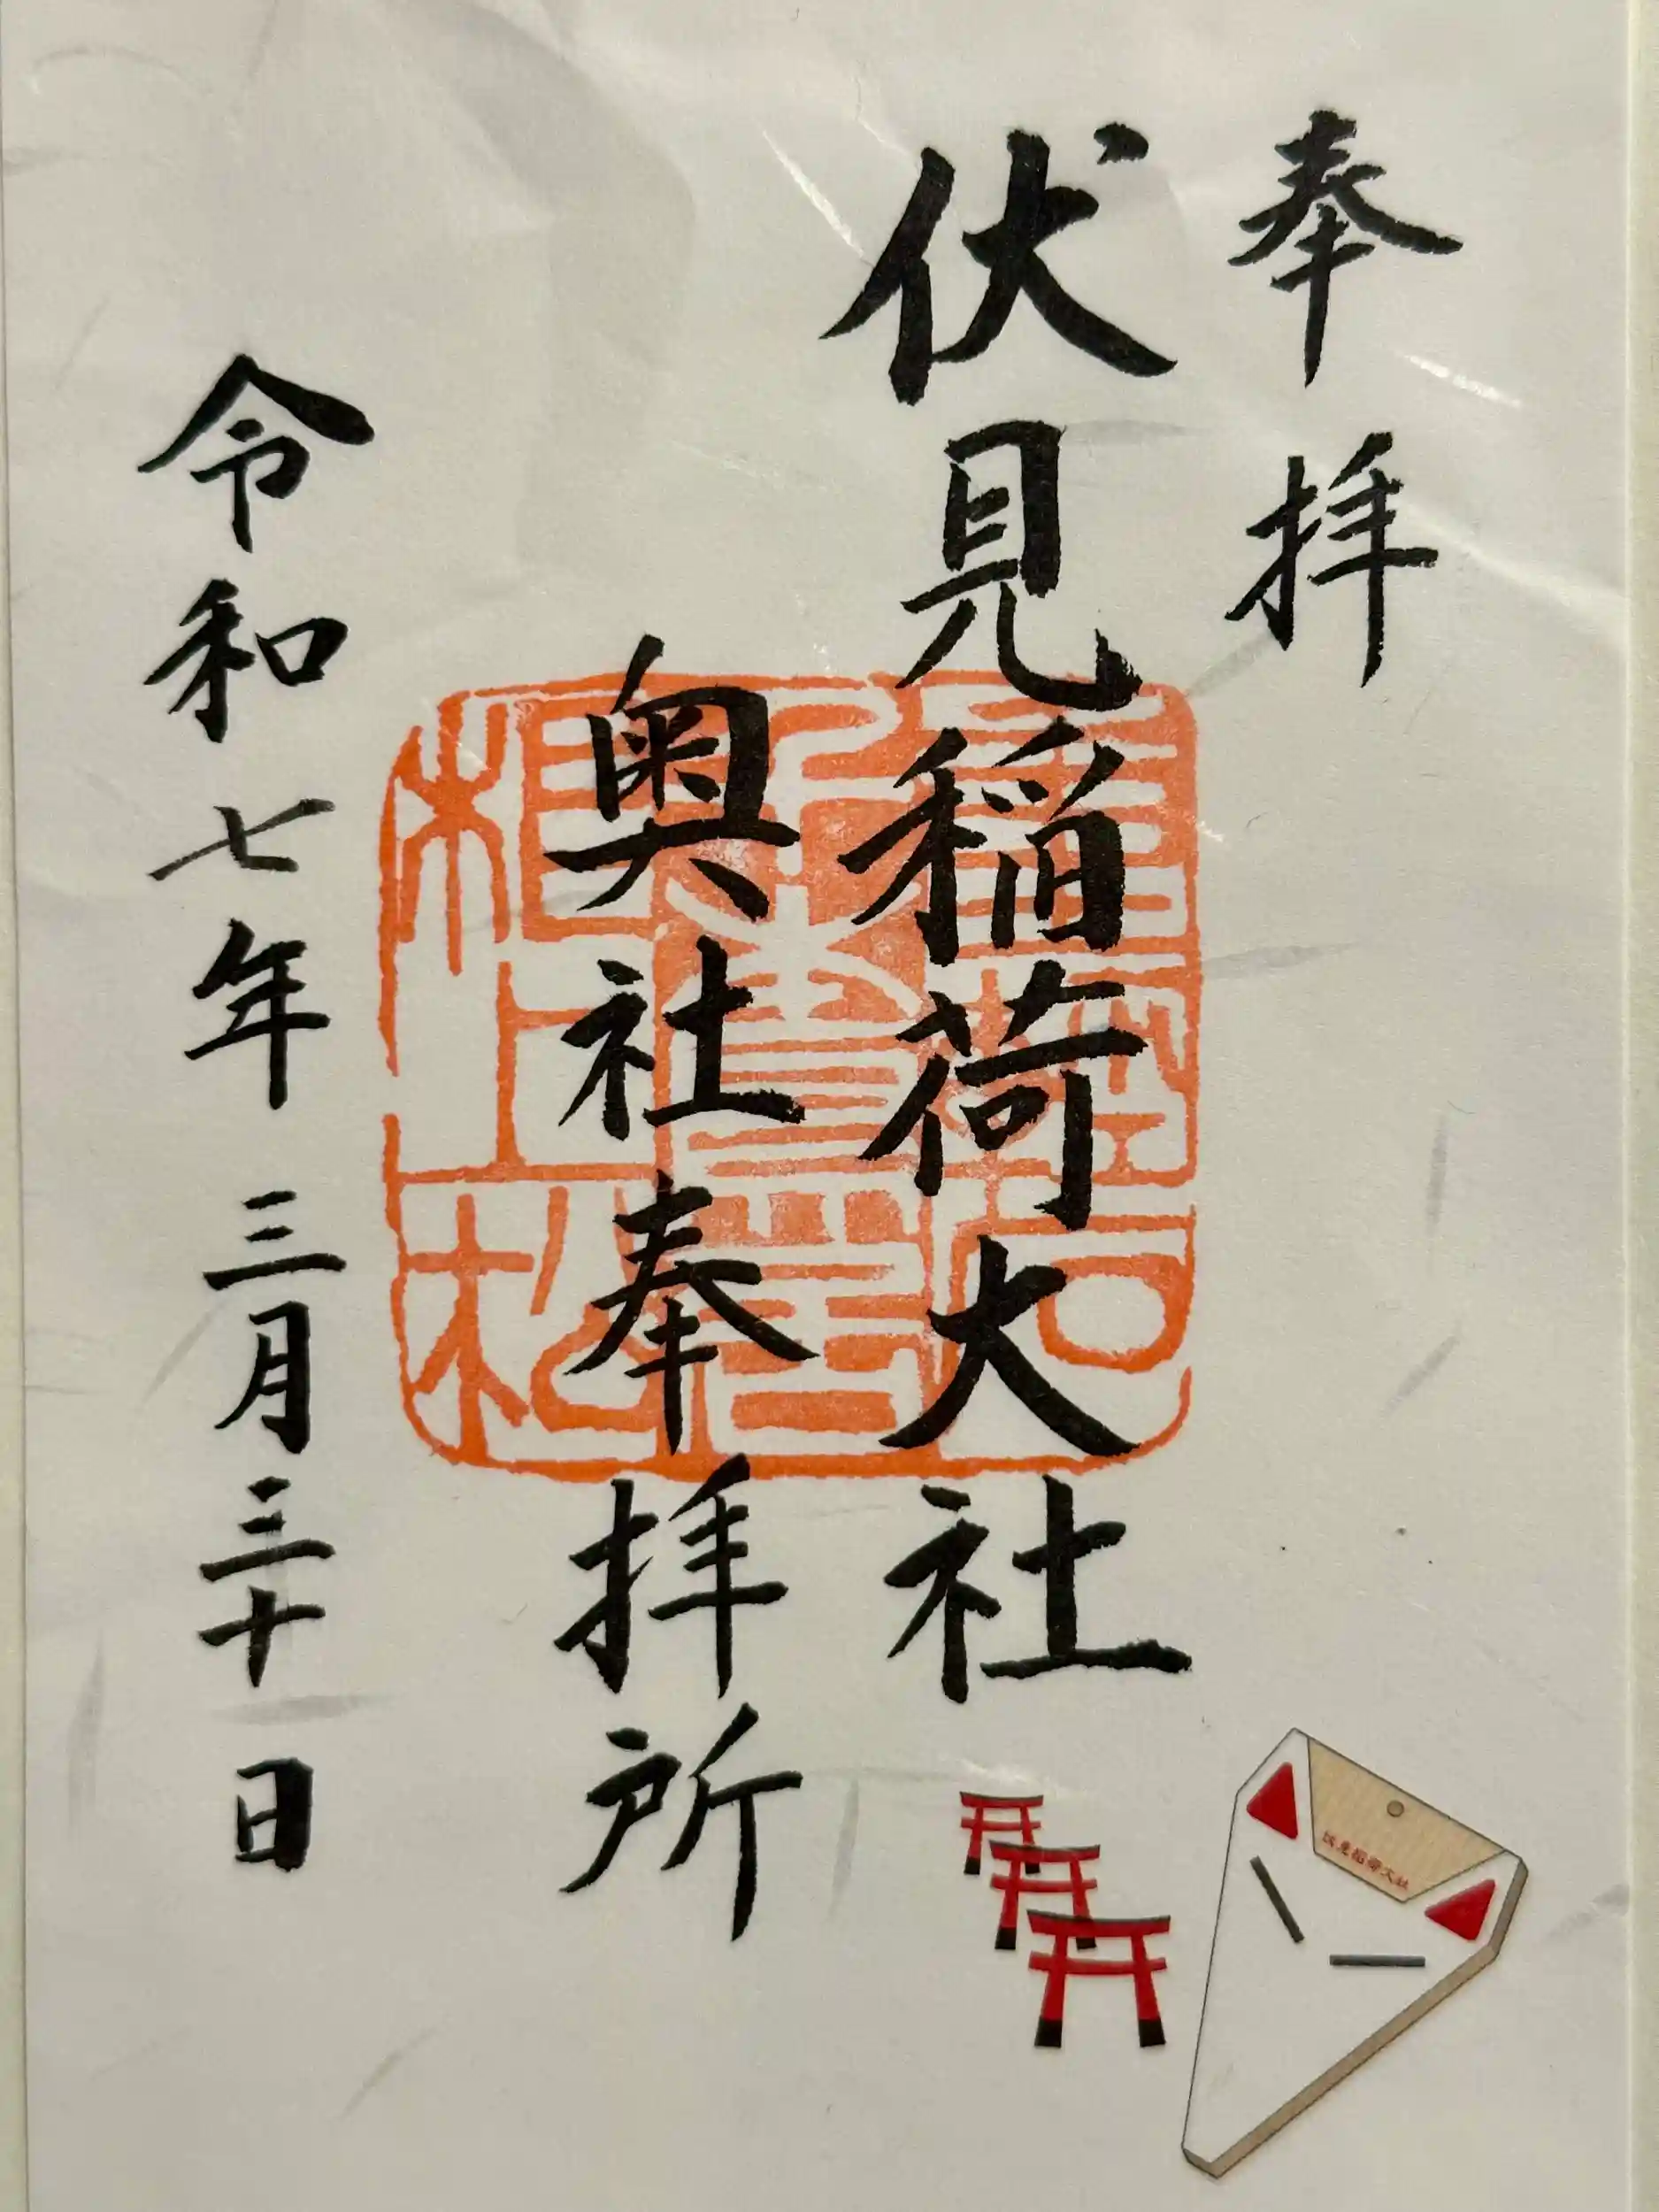 奉拝
伏見稲荷大社
奥社奉拝所
令和七年 三月三十日
伏見稲荷大社